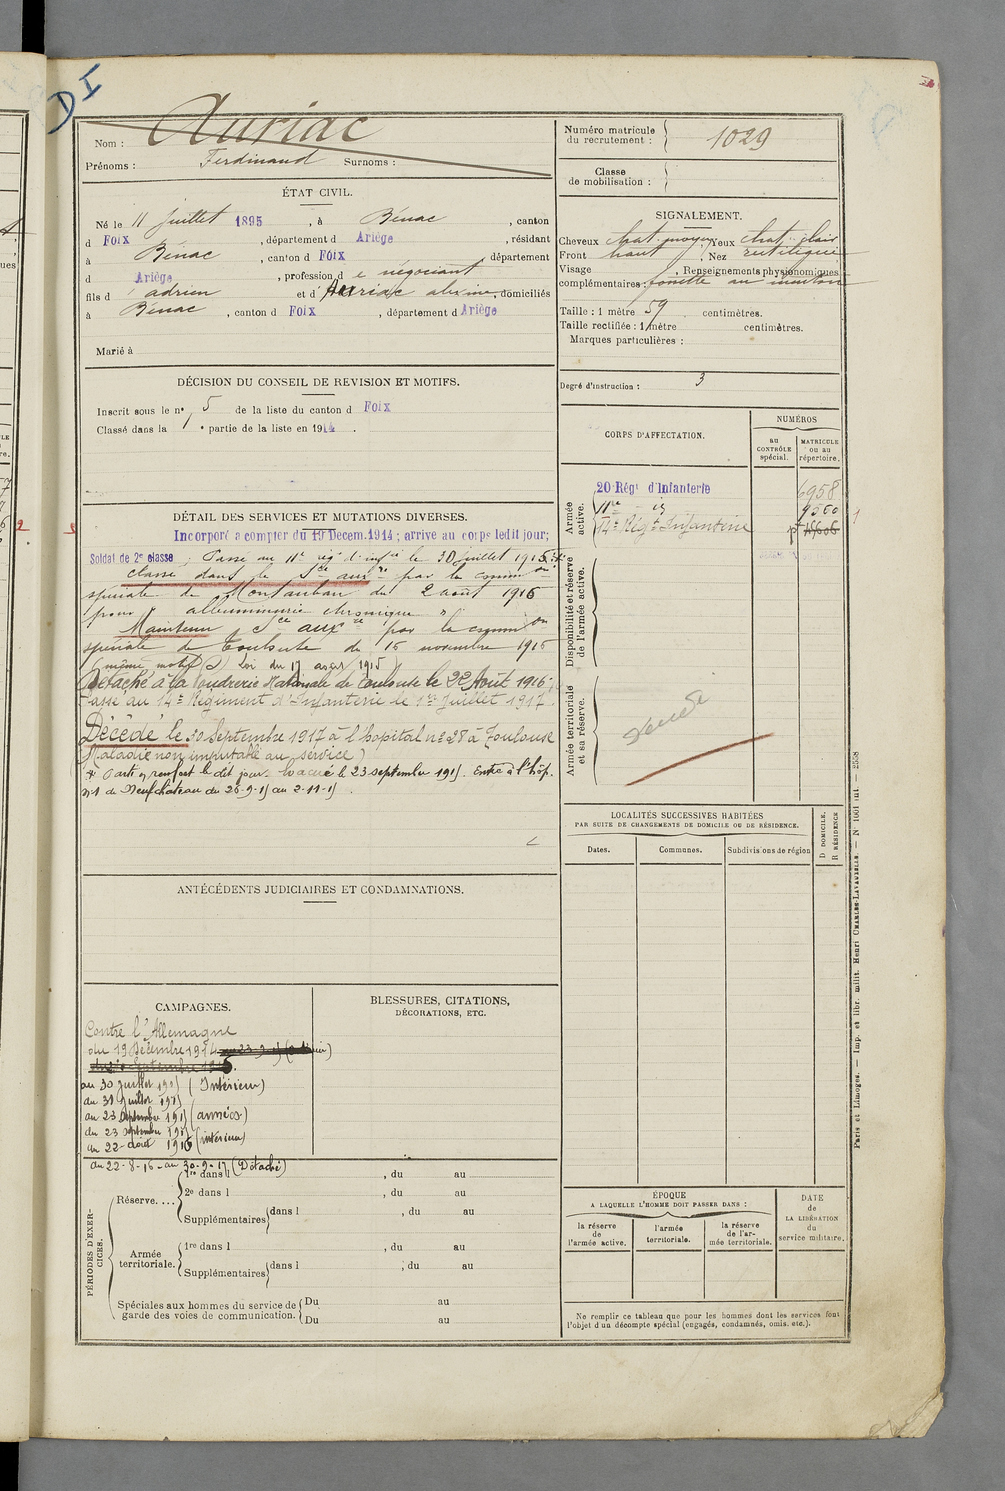 D I
Nom : Auriac
Prénoms : Ferdinand Surnoms :
Numéro matricule du recrutement : 1029
Classe de mobilisation :
ÉTAT CIVIL.
Né le 11 juillet 1895, à Bénac, canton
d Foix, département d Ariège, résidant
à Bénac, canton d Foix, département
d Ariège, profession d e négociant
fils d adrien et d Auriac, domiciliés
à Bénac, canton d Foix, département d Ariège
Marié à
SIGNALEMENT.
Cheveux chat. moyen Yeux chat. clair
Front haut, Nez rectiligne
Visage Renseignements physionomiques
complémentaires : fossette au menton
Taille : 1 mètre 59 centimètres.
Taille rectifiée : 1 mètre centimètres.
Marques particulières :
Degré d'instruction : 3
DÉCISION DU CONSEIL DE REVISION ET MOTIFS.
Inscrit sous le n° 5 de la liste du canton d Foix
Classé dans la 1 e partie de la liste en 1914.
CORPS D'AFFECTATION.
NUMÉROS
au CONTRÔLE spécial.
MATRICULE ou au répertoire.
Armée active.
20 Régt d'Infanterie 6958
11me - id
14e Régt Infanterie
Disponibilité et réserve de l'armée active.
Armée territoriale et sa réserve.
DÉTAIL DES SERVICES ET MUTATIONS DIVERSES.
Incorporé à compter du 19 Décem. 1914 ; arrive au corps ledit jour;
Soldat de 2e classe ; Passé au 11e rég. d'infie le 30 juillet 1915.
classé dans le Sce auxre par la common
spéciale de Montauban du 2 août 1916
pour "albuminurie chronique"
Maintenu Sce auxre par la common
spéciale de Toulouse du 16 novembre 1915
(même motif) Loi du 17 août 1915
Détaché à la Poudrerie Nationale de Toulouse le 22 Août 1916;
Passé au 14e Régiment d'Infanterie le 1er Juillet 1917.
Décédé le 30 Septembre 1917 à l'hôpital n° 28 à Toulouse
(Maladie non imputable au service)
Parti en renfort le dit jour. Evacué le 23 septembre 1915. Entré à l'hôp.
n° 1 de Neufchateau du 26-9-15 au 2-11-15.
ANTÉCÉDENTS JUDICIAIRES ET CONDAMNATIONS.
LOCALITÉS SUCCESSIVES HABITÉES
PAR SUITE DE CHANGEMENTS DE DOMICILE OU DE RÉSIDENCE.
Dates. Communes. Subdivisions de région
D DOMICILE. R RÉSIDENCE
CAMPAGNES.
Contre l'Allemagne
du 19 Décembre 1914
au 30 juillet 1915 (Intérieur)
du 31 juillet 1915
au 23 septembre 1915 (armées)
du 23 septembre 1915
au 22 août 1916 (intérieur)
du 22-8-16 - au 30-9-17 (Détaché)
BLESSURES, CITATIONS,
DÉCORATIONS, ETC.
PÉRIODES D'EXERCICES.
Réserve....
1re dans l , du au
2e dans l , du au
Supplémentaires dans l , du au
Armée territoriale.
1re dans l , du au
Supplémentaires dans l , du au
Spéciales aux hommes du service de garde des voies de communication.
Du au
Du au
ÉPOQUE
A LAQUELLE L'HOMME DOIT PASSER DANS :
la réserve de l'armée active.
l'armée territoriale.
la réserve de l'armée territoriale.
DATE de LA LIBÉRATION du service militaire.
Ne remplir ce tableau que pour les hommes dont les services font
l'objet d'un décompte spécial (engagés, condamnés, omis, etc.).
Paris et Limoges. — Imp. et libr. milit. Henri CHARLES-LAVAUZELLE. — N° 1001 int. — 2558